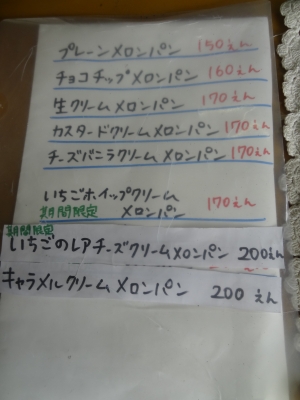 プレーンメロンパン 150えん
チョコチップメロンパン 160えん
生クリームメロンパン 170えん
カスタードクリームメロンパン 170えん
チーズバニラクリームメロンパン 170えん
いちごホイップクリーム
期間限定 メロンパン 170えん
期間限定
いちごのレアチーズクリームメロンパン 200えん
キャラメルクリームメロンパン 200えん